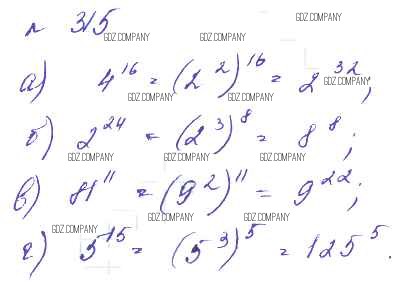 № 315
а) 4^16 = (2^2)^16 = 2^32;
б) 2^24 = (2^3)^8 = 8^8;
в) 81^11 = (9^2)^11 = 9^22;
г) 5^15 = (5^3)^5 = 125^5.
GDZ.COMPANY
GDZ.COMPANY GDZ.COMPANY
GDZ.COMPANY
GDZ.COMPANY GDZ.COMPANY
GDZ.COMPANY GDZ.COMPANY GDZ.COMPANY
GDZ.COMPANY GDZ.COMPANY
GDZ.COMPANY